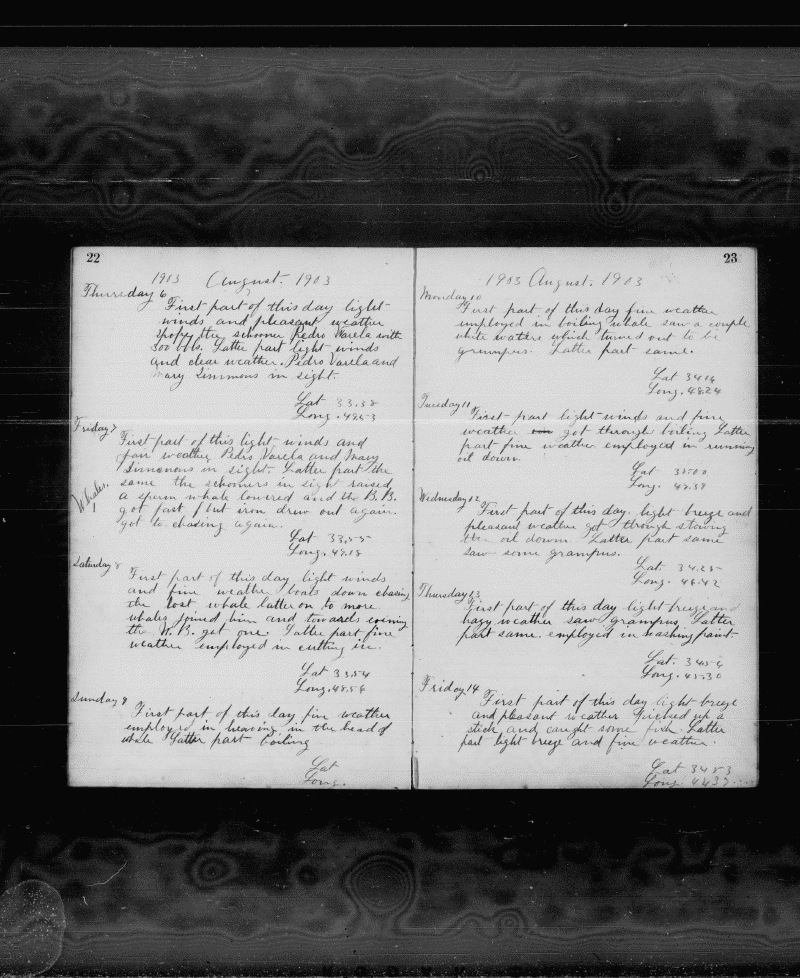 22
1903 August. 1903
Thursday 6
First part of this day light
winds and pleasant weather
the schooner Pedro Varela with
300 bbls. Latter part light winds
and clear weather. Pedro Varela and
Mary Simmons in sight.
Lat 33.38
Long. 49.53
Friday 7
First part of this light winds and
fair weather Pedro Varela and Mary
Simmons in sight. Latter part the
same the schooners in sight raised
Whales.
a sperm whale lowered and the B.B.
got fast, but iron drew out again.
got to chasing again.
Lat 33.55
Long. 49.18
Saturday 8
First part of this day light winds
and fine weather boats down chasing
the lost whale latter on to more
whales joined him and towards evening
the W.B. get one. Latter part fine
weather employed in cutting in.
Lat 33.54
Long. 48.54
Sunday 9
First part of this day fine weather
employed in heaving in the head of
whale Latter part boiling
Lat
Long.
23
1903 August. 1903
Monday 10
First part of this day fine weather
employed in boiling whale saw a couple
white waters which turned out to be
grampus. Latter part same.
Lat 34 14
Long. 48 24
Tuesday 11
First part light winds and fine
weather got through boiling Latter
part fine weather employed in running
oil down.
Lat
Long. 47.38
Wednesday 12
First part of this day light breeze and
pleasant weather got through stowing
the oil down. Latter part same
saw some grampus.
Lat 34.25
Long. 46.42
Thursday 13
First part of this day light breeze and
hazy weather saw grampus, Latter
part same. employed in washing paint.
Lat. 34 54
Long. 45.30
Friday 14
First part of this day light breeze
and pleasant weather Picked up a
stick and caught some fish. Latter
part light breeze and fine weather.
Lat 34 53
Long. 44 37